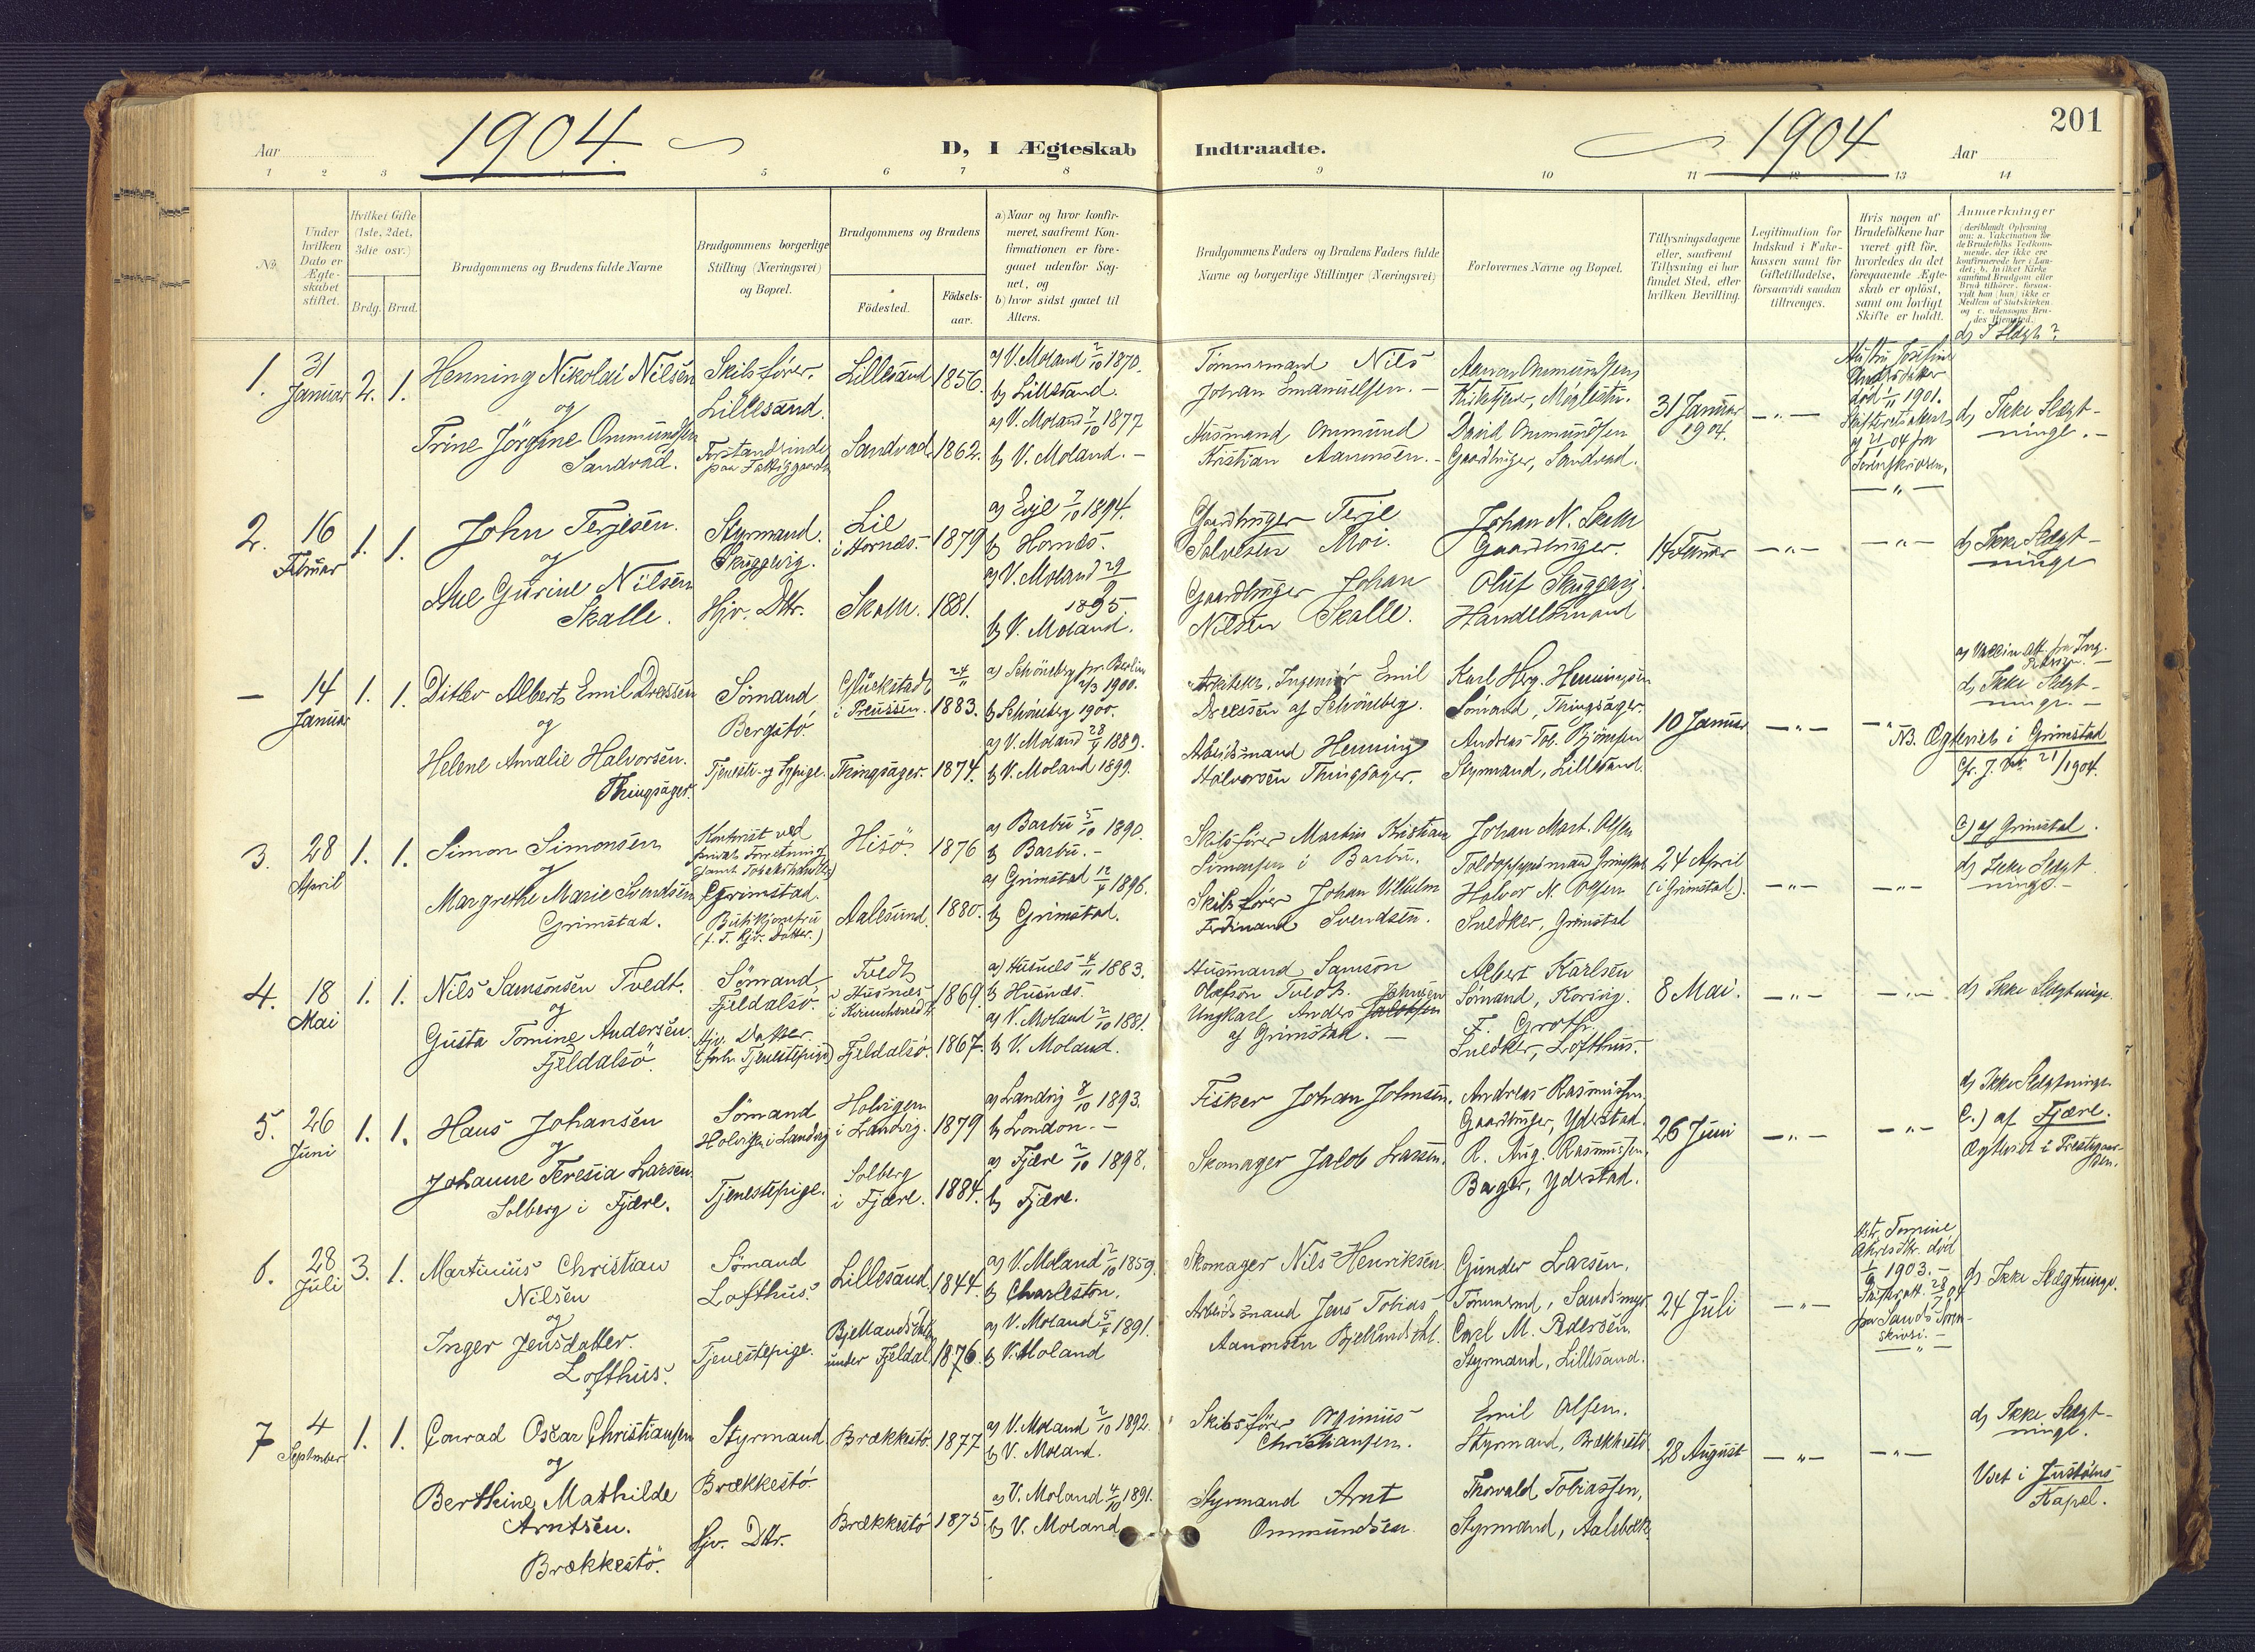 Aar 1904. D, I Ægteskab Indtraadte. 1904 Aar 201
1 2 3 4 5 6 7 8 9 10 11 12 13 14
No.
Under hvilken Dato er Ægteskabet stiftet.
Hvilket Gifte (1ste, 2det, 3die osv.)
Brdg. Brud.
Brudgommens og Brudens fulde Navne
Brudgommens borgerlige Stilling (Næringsvei) og Bopæl.
Brudgommens og Brudens
Födested.
Födselsaar.
a) Naar og hvor konfirmeret, saafremt Konfirmationen er foregaaet udenfor Sognet, og
b) hvor sidst gaaet til Alters.
Brudgommens Faders og Brudens Faders fulde Navne og borgerlige Stillinger (Næringsvei)
Forlovernes Navne og Bopæl.
Tillysningsdagene eller, saafremt Tillysning ei har fundet Sted, efter hvilken Bevilling.
Legitimation for Indskud i Enkekassen samt for Giftetilladelse, forsaavidt saadan tiltrænges.
Hvis nogen af Brudefolkene har været gift för, hvorledes da det foregaaende Ægteskab er oplöst, samt om lovligt Skifte er holdt.
Anmærkninger
1. 31 Januar 2. 1.
Henning Nikolai Nilsen
og
Trine Jörgine Ommundsen
Sandvad.
Skibsfører.
Lillesand.
Forstanderinde
paa Fattiggaarden
Lillesand 1856.
Sandvad 1862.
a) V. Moland 2/10 1870.
b) Lillesand.
a) V. Moland 7/10 1877
b) V. Moland. -
Tömmermand Nils
Johan Emanuelsen. -
Husmand Ommund
Kristian Aanonsen. -
Aanon Ommundsen
David Ommundsen
Gaardbruger, Sandvad.
31 Januar
1904.
- „ -
Hustru Josefine
död 1/11 1901.
- „ -
d) Ikke Slægt-
ninge. -
2. 16 Februar 1. 1.
John Terjesen.
og
Ane Gurine Nilsen
Skalle.
Styrmand.
Skuggevig.
Hjv. Dttr.
Lie
i Hornæs. 1879
Skalle. 1881.
a) Evje 7/10 1894.
b) Hornæs.
a) V. Moland 29/9
1895.
b) V. Moland.
Gaardbruger Terje
Salvesen Moi.
Gaardbruger Johan
Nilsen Skalle.
Johan N. Skalle
Gaardbruger.
Oluf Skuggevig.
Handelsmand
14 Februar
- „ -
- „ -
d) Ikke Slægt-
ninge
- 14 Januar 1. 1.
Ditlev Albert Emil Dressen
og
Helene Amalie Halvorsen.
Thingsager.
Sömand
Bergstö.
Tjeneste- og Sypige.
Glückstadt
i Preussen. 24/11 1883.
Thingsager. 1874.
a) Schöneberg pr. Berlin
2/3 1900.
b) Schöneberg 1900.
a) V. Moland 28/4 1889.
b) V. Moland 1899.
Arkitekt, Ingeniør Emil
Dressen af Schöneberg.
Arbeidsmand Henning
Halvorsen Thingsager.
Karl Herg. Henningsen
Sömand, Thingsager.
Andreas Tob. Björnsen
Styrmand, Lillesand.
10 Januar
- „ -
- „
d) Ikke Slægt-
ninge. -
NB. Ægteviet i Grimstad
21/1904.
3. 28 April 1. 1.
Simon Simonsen
og
Margrethe Marie Svendsen
Grimstad.
Kontorist ved
privat Forretning
samt Tobakshandler
Grimstad.
Butikjomfru
(f. T. hjv. Datter.)
Hisö. 1876
Aalesund. 1880.
a) Barbu 5/10 1890.
b) Barbu. -
a) Grimstad 12/4 1896.
b) Grimstad.
Skibsfører Martin Kristian
Simonsen i Barbu.
Skibsfører Johan Vilhelm
Ferdinand Svendsen.
Johan Mart. Olsen
Toldopsynsmand Grimstad
Halvor N. Olsen
Snedker, Grimstad
24 April
(i Grimstad).
- „ -
- „ -
c) af Grimstad.
d) Ikke Slægt
ninge. -
4. 18 Mai 1. 1.
Nils Samsonsen Tvedt.
og
Gusta Tomine Andersen.
Fjeldalsö.
Sömand
Fjeldalsö.
Hjv. Datter
(forh. Tjenestepige)
Tvedt
i Husnæs
i Kvindherred 1869.
Fjeldalsö. 1867.
a) Husnæs 4/11 1883.
b) Husnæs.
a) V. Moland 2/10 1881.
b) V. Moland.
Husmand Samson
Olafsen Tvedt. Johnsen
Ungkarl Anders
af Grimstad. -
Albert Karlsen
Sömand, Korsvig.
F. Groth.
Snedker, Lofthus.
8 Mai.
- „ -
- „ -
d) Ikke Slægtninge.
5. 26 Juni 1. 1.
Hans Johansen
og
Johanne Teresia Larsen.
Solberg i Fjære.
Sömand
Holvigen i Landvig
Tjenestepige.
Holvigen
i Landvig. 1879
Solberg
i Fjære. 1884.
a) Landvig 8/10 1893.
b) London. -
a) Fjære 2/10 1898.
b) Fjære.
Fisker Johan Johnsen.
Skomager Jacob Larsen.
Andreas Rasmussen.
Gaardbruger, Yderstad.
R. Aug. Rasmussen.
Bager, Yderstad.
26 Juni
- „ -
- „ -
d) Ikke Slægtninge
C.) af Fjære.
Ægteviet i Prestegaar-
den.
6. 28 Juli 3. 1.
Martinius Christian
Nilsen
og
Inger Jensdatter.
Lofthus.
Sömand
Lofthus.
Tjenestepige.
Lillesand. 1844.
under Fjeldal. 1876.
a) V. Moland 2/10 1859.
b) Charleston.
a) V. Moland 5/4 1891.
b) V. Moland
Skomager Nils Henriksen.
Arbeidsmand Jens Tobias
Aanonsen
Gunder Larsen.
Tömmermd, Sandsmyr.
Carl M. Pedersen.
Styrmand, Lillesand.
24 Juli
- „ -
Hstr. Tomine
død
1903. -
Skifteatt. 28/7 04
- „ -
d) Ikke Slægtninge.
7 4 September. 1. 1.
Conrad Oscar Christiansen
og
Berthine Mathilde
Arntsen.
Brækkestö.
Styrmand
Brækkestö.
Hjv. Dttr.
Brækkestö 1877
Brækkestö 1875.
a) V. Moland 2/10 1892.
b) V. Moland.
a) V. Moland 4/10 1891.
b) V. Moland
Skibsfører Orginius
Christiansen.
Styrmand Arnt
Ommundsen.
Emil Olsen.
Styrmand, Brækkestö
Thorvald Tobiassen,
Styrmand,
28 August
- „ -
- „ -
d) Ikke Slægt-
ninge.
Viet i Justöens
Kapel.